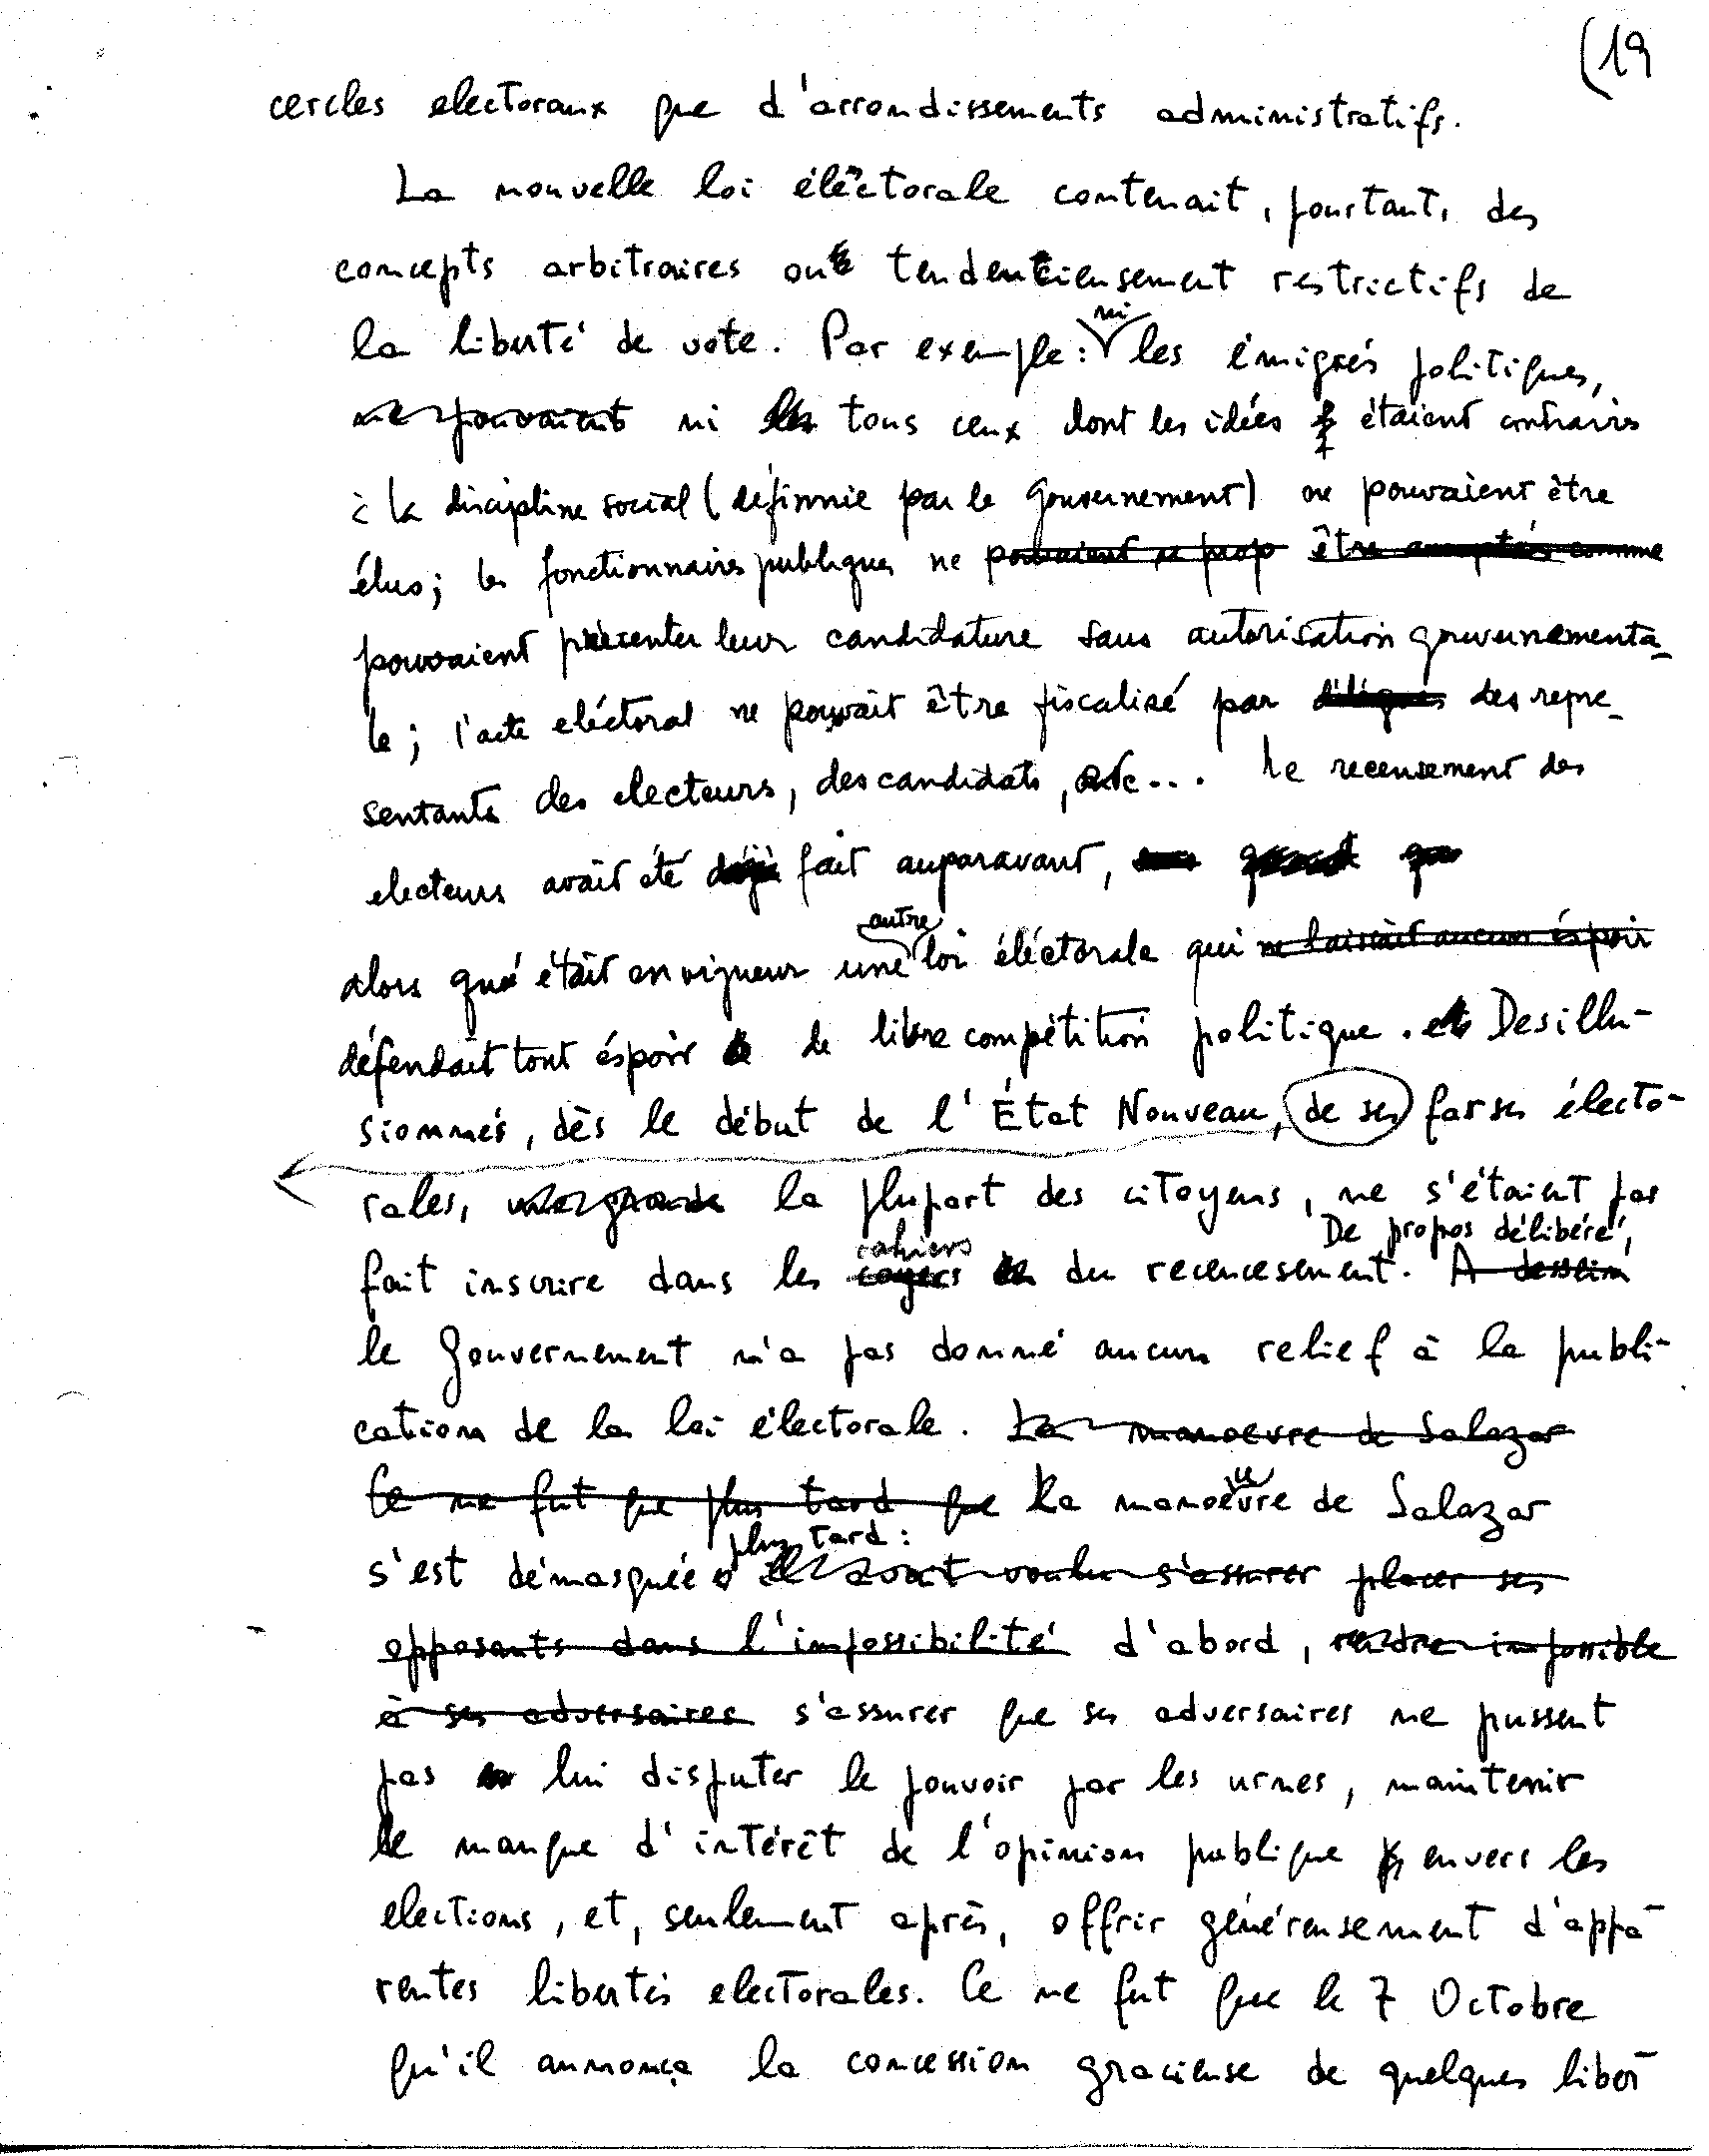 (19
cercles electoraux que d'arrondissements administratifs.
La nouvelle loi éléctorale contenait, pourtant, des
concepts arbitraires ou tendentieusement restrictifs de
la liberté de vote. Par exemple : ni les émigrés politiques,
ne pouvaient ni les tous ceux dont les idées étaient contraires
à la discipline social (définnie par le Gouvernement) ne pouvaient être
élus; les fonctionnaires publiques ne pouvaient se prop être acceptés comme
pouvaient présenter leur candidature sans autorisation gouvernementa-
le; l'acte eléctoral ne pouvait être fiscalisé par délégués des repre-
sentants des electeurs, des candidats, etc... Le recensement des
electeurs avait été déjà fait auparavant,
alors qué était en vigueur une autre loi éléctorale qui ne laissait aucun éspoir
défendait tout éspoir de libre compétition politique. Desillu-
sionnés, dès le début de l'État Nouveau, de ses farses électo-
rales, une grande la plupart des citoyens, ne s'étaient pas
fait inscrire dans les cayers cahiers du recencesement. A dessein De propos délibéré,
le Gouvernement n'a pas donné aucun relief à la publi-
cation de la loi électorale. La manoeuvre de Salazar
Ce ne fut que plus tard que la manoeuvre de Salazar
s'est démasquée plus tard : Il avait voulu s'assurer placer ses
opposants dans l'impossibilité d'abord, rendre impossible
à ses adversaires s'assurer que ses adversaires ne pussent
pas lui disputer le pouvoir par les urnes, maintenir
le manque d'intérêt de l'opinion publique envers les
elections, et, seulement après, offrir généreusement d'appa-
rentes libertés electorales. Ce ne fut que le 7 Octobre
qu'il annonça la concession gracieuse de quelques liber-